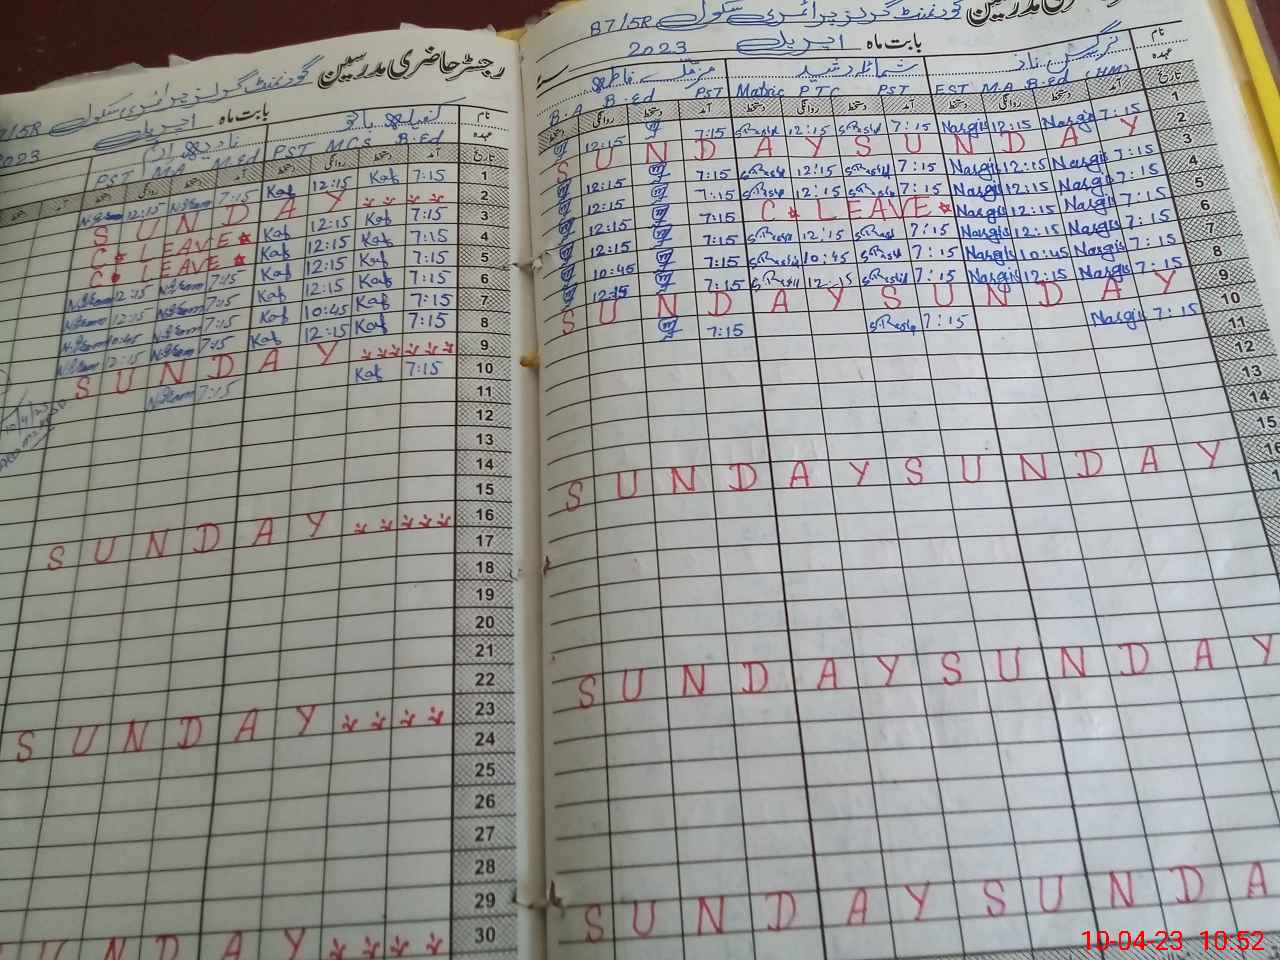 رجسٹر حاضری مدرسین گورنمنٹ گرلز پرائمری سکول 7/5R
بابت ماہ اپریل 2023
نام کفیلہ بانو
عہدہ B.Ed M.CS PST M.Ed M.A PST
تاریخ آمد دستخط روانگی دستخط آمد دستخط روانگی دستخط آمد دستخط
1 7:15 Kaf 12:15 Kaf 7:15 12:15
2 S U N D A Y
3 7:15 Kaf 12:15 Kaf C. LEAVE
4 7:15 Kaf 12:15 Kaf C. LEAVE
5 7:15 Kaf 12:15 Kaf 7:15 12:15
6 7:15 Kaf 12:15 Kaf 7:15 12:15
7 7:15 Kaf 10:45 Kaf 7:15 10:45
8 7:15 Kaf 12:15 Kaf 7:15 12:15
9 S U N D A Y
10 7:15 Kaf 7:15
11
12
13
14
15
16 S U N D A Y
17
18
19
20
21
22
23 S U N D A Y
24
25
26
27
28
29
30 U N D A Y
مدرسین گورنمنٹ گرلز پرائمری سکول 87/5R
بابت ماہ اپریل 2023 سنہ
نام نرگس ناز شمائلہ رشید فاطمہ
عہدہ (HM) B.Ed M.A EST PST PTC Matric PST B.Ed B.A
تاریخ آمد دستخط روانگی دستخط آمد دستخط روانگی دستخط آمد دستخط روانگی دستخط
1 7:15 Nargis 12:15 Nargis 7:15 S.Rashid 12:15 S.Rashid 7:15 12:15
2 S U N D A Y S U N D A Y
3 7:15 Nargis 12:15 Nargis 7:15 S.Rashid 12:15 S.Rashid 7:15 12:15
4 7:15 Nargis 12:15 Nargis 7:15 S.Rashid 12:15 S.Rashid 7:15 12:15
5 7:15 Nargis 12:15 Nargis C. LEAVE 7:15 12:15
6 7:15 Nargis 12:15 Nargis 7:15 S.Rashid 12:15 S.Rashid 7:15 12:15
7 7:15 Nargis 10:45 Nargis 7:15 S.Rashid 10:45 S.Rashid 7:15 10:45
8 7:15 Nargis 12:15 Nargis 7:15 S.Rashid 12:15 S.Rashid 7:15 12:15
9 S U N D A Y S U N D A Y
10 7:15 Nargis 7:15 S.Rashid 7:15
11
12
13
14
15
16 S U N D A Y S U N D A Y
S U N D A Y S U N D A Y
S U N D A Y S U N D A
10-04-23 10:52